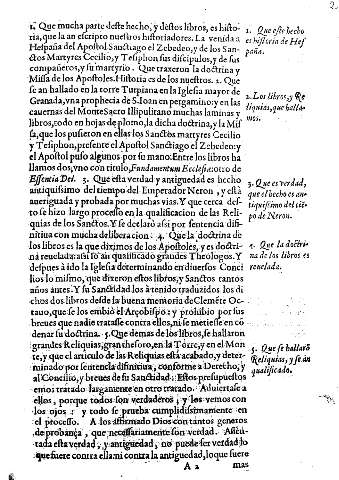 2
1. Que mucha parte deste hecho, y destos libros, es histo-
ria, que la an escripto nuestros historiadores. La venida a
Hespaña del Apostol Sanctiago el Zebedeo, y de los San-
ctos Martyres Cecilio, y Tesiphon sus discipulos, y de sus
compañeros, y su martyrio. Que traxeron la doctrina y
Missa de los Apostoles. Historia es de los nuestros. 2. Que
se an hallado en la torre Turpiana en la Iglesia mayor de
Granada, vna prophecia de S. Ioan en pergamino: y en las
cauernas del Monte Sacro Illipulitano muchas laminas y
libros, todo en hojas de plomo, la dicha doctrina, y la Mis
sa, que los pusieron en ellas los Sanctos martyres Cecilio
y Tesiphon, presente el Apostol Sanctiago el Zebedeo: y
el Apostol puso algunos por su mano: Entre los libros ha
llamos dos, vno con titulo, Fundamentum Ecclesiæ: otro de
Essentia Dei. 3. Que esta verdad y antiguedad es hecho
antiquissimo del tiempo del Emperador Neron, y está
aueriguada y probada por muchas vias. Y que cerca des-
to se hizo largo processo en la qualificacion de las Reli-
quias de los Sanctos. Y se declaró assi por sentencia difi-
nitiua con mucha deliberacion. 4. Que la doctrina de
los libros es la que diximos de los Apostoles, y es doctri-
na reuelada: assi lo an qualificado grandes Theologos. Y
despues à ido la Iglesia determinando en diuersos Conci
lios lo mismo, que dizeron estos libros, y Sanctos tantos
años antes. Y su Sanctidad los à tenido traduzidos los di
chos dos libros desde la buena memoria de Clemẽte Oc-
tauo, que se los embió el Arçobispo: y prohibio por sus
breues que nadie tratasse contra ellos, ni se metiesse en cõ
denar su doctrina. 5. Que demas de los libros, se hallaron
grandes Reliquias, gran thesoro, en la Torre, y en el Mon
te, y que el articulo de las Reliquias está acabado, y deter-
minado por sentencia difinitiua, conforme a Derecho, y
al Concilio, y breues de su Sanctidad. Estos presupuestos
emos tratado largamente en otro tratado. Aduiertase a
ellos, porque todos son verdaderos, y los vemos con
los ojos: y todo se prueba cumplidissimamente en
el processo. A los affirmado Dios con tantos generos
de probança, que necessariamente son verdad. Assen-
tada esta verdad, y antiguedad, no puede ser verdad lo
que fuere contra ella: ni contra la antiguedad, lo que fuere
A 2 mas
1. Que este hecho
es historia de Hes
paña.
2. Los libros, y Re
liquias, que halla-
mos.
3. Que es verdad,
que el hecho es an-
tiquissimo del tie-
po de Neron.
4. Que la doctri-
na de los libros es
reuelada.
5. Que se hallarõ
Reliquias, y se án
qualificado.